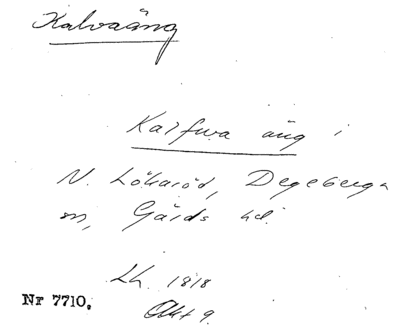 Kalvaäng
Kalfwa äng i
N. Lökaröd, Degeberga
sn, Gärds hd.
Lh. 1818
Nr 7710.
Akt 9.